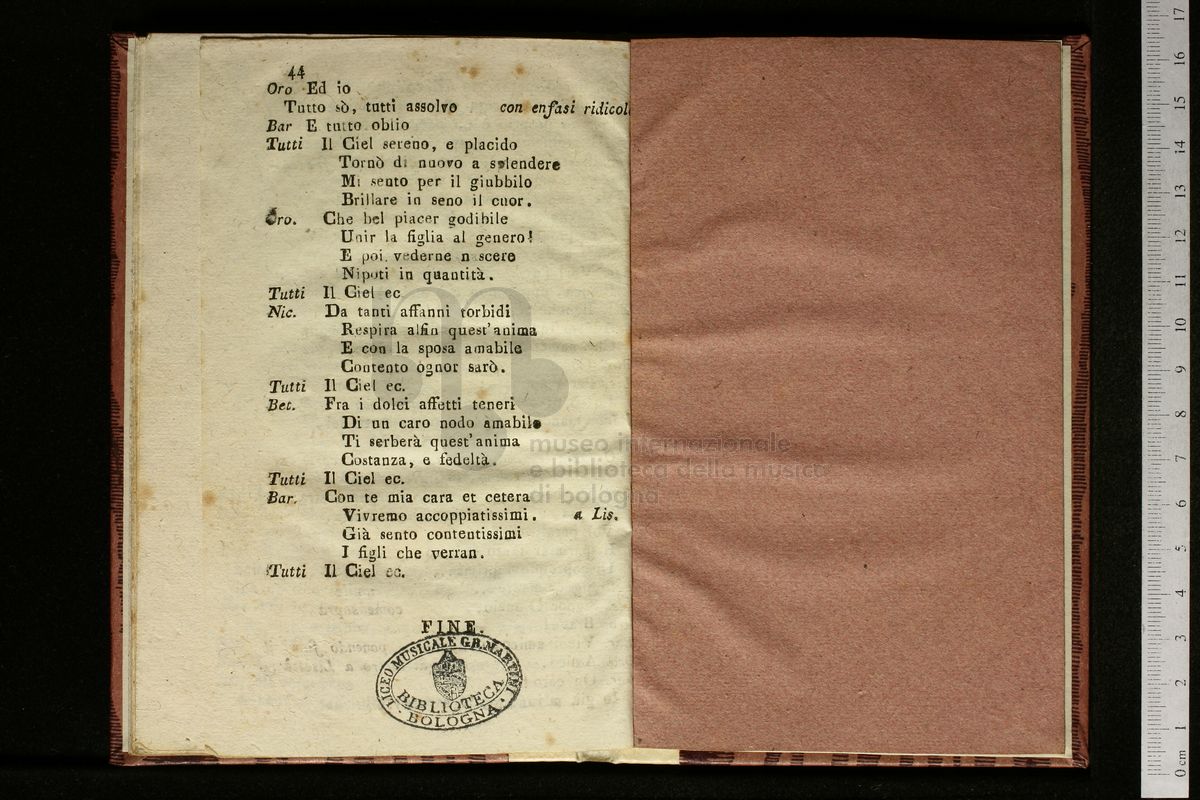 44
Oro Ed io
Tutto sò, tutti assolvo con enfasi ridicol
Bar E tutto oblio
Tutti Il Ciel sereno, e placido
Tornò di nuovo a splendere
Mi sento per il giubbilo
Brillare in seno il cuor.
Oro. Che bel piacer godibile
Unir la figlia al genero!
E poi vederne n scere
Nipoti in quantità.
Tutti Il Ciel ec
Nic. Da tanti affanni torbidi
Respira alfin quest'anima
E con la sposa amabile
Contento ognor sarò.
Tutti Il Ciel ec.
Bet. Fra i dolci affetti teneri
Di un caro nodo amabile
Ti serberà quest'anima
Costanza, e fedeltà.
Tutti Il Ciel ec.
Bar. Con te mia cara et cetera
Vivremo accoppiatissimi. a Lis.
Già sento contentissimi
I figli che verran.
Tutti Il Ciel ec.
FINE.
LICEO MUSICALE G.B. MARTINI
BIBLIOTECA
· BOLOGNA ·
museo internazionale
e biblioteca della musica
di bologna
0 cm 1 2 3 4 5 6 7 8 9 10 11 12 13 14 15 16 17